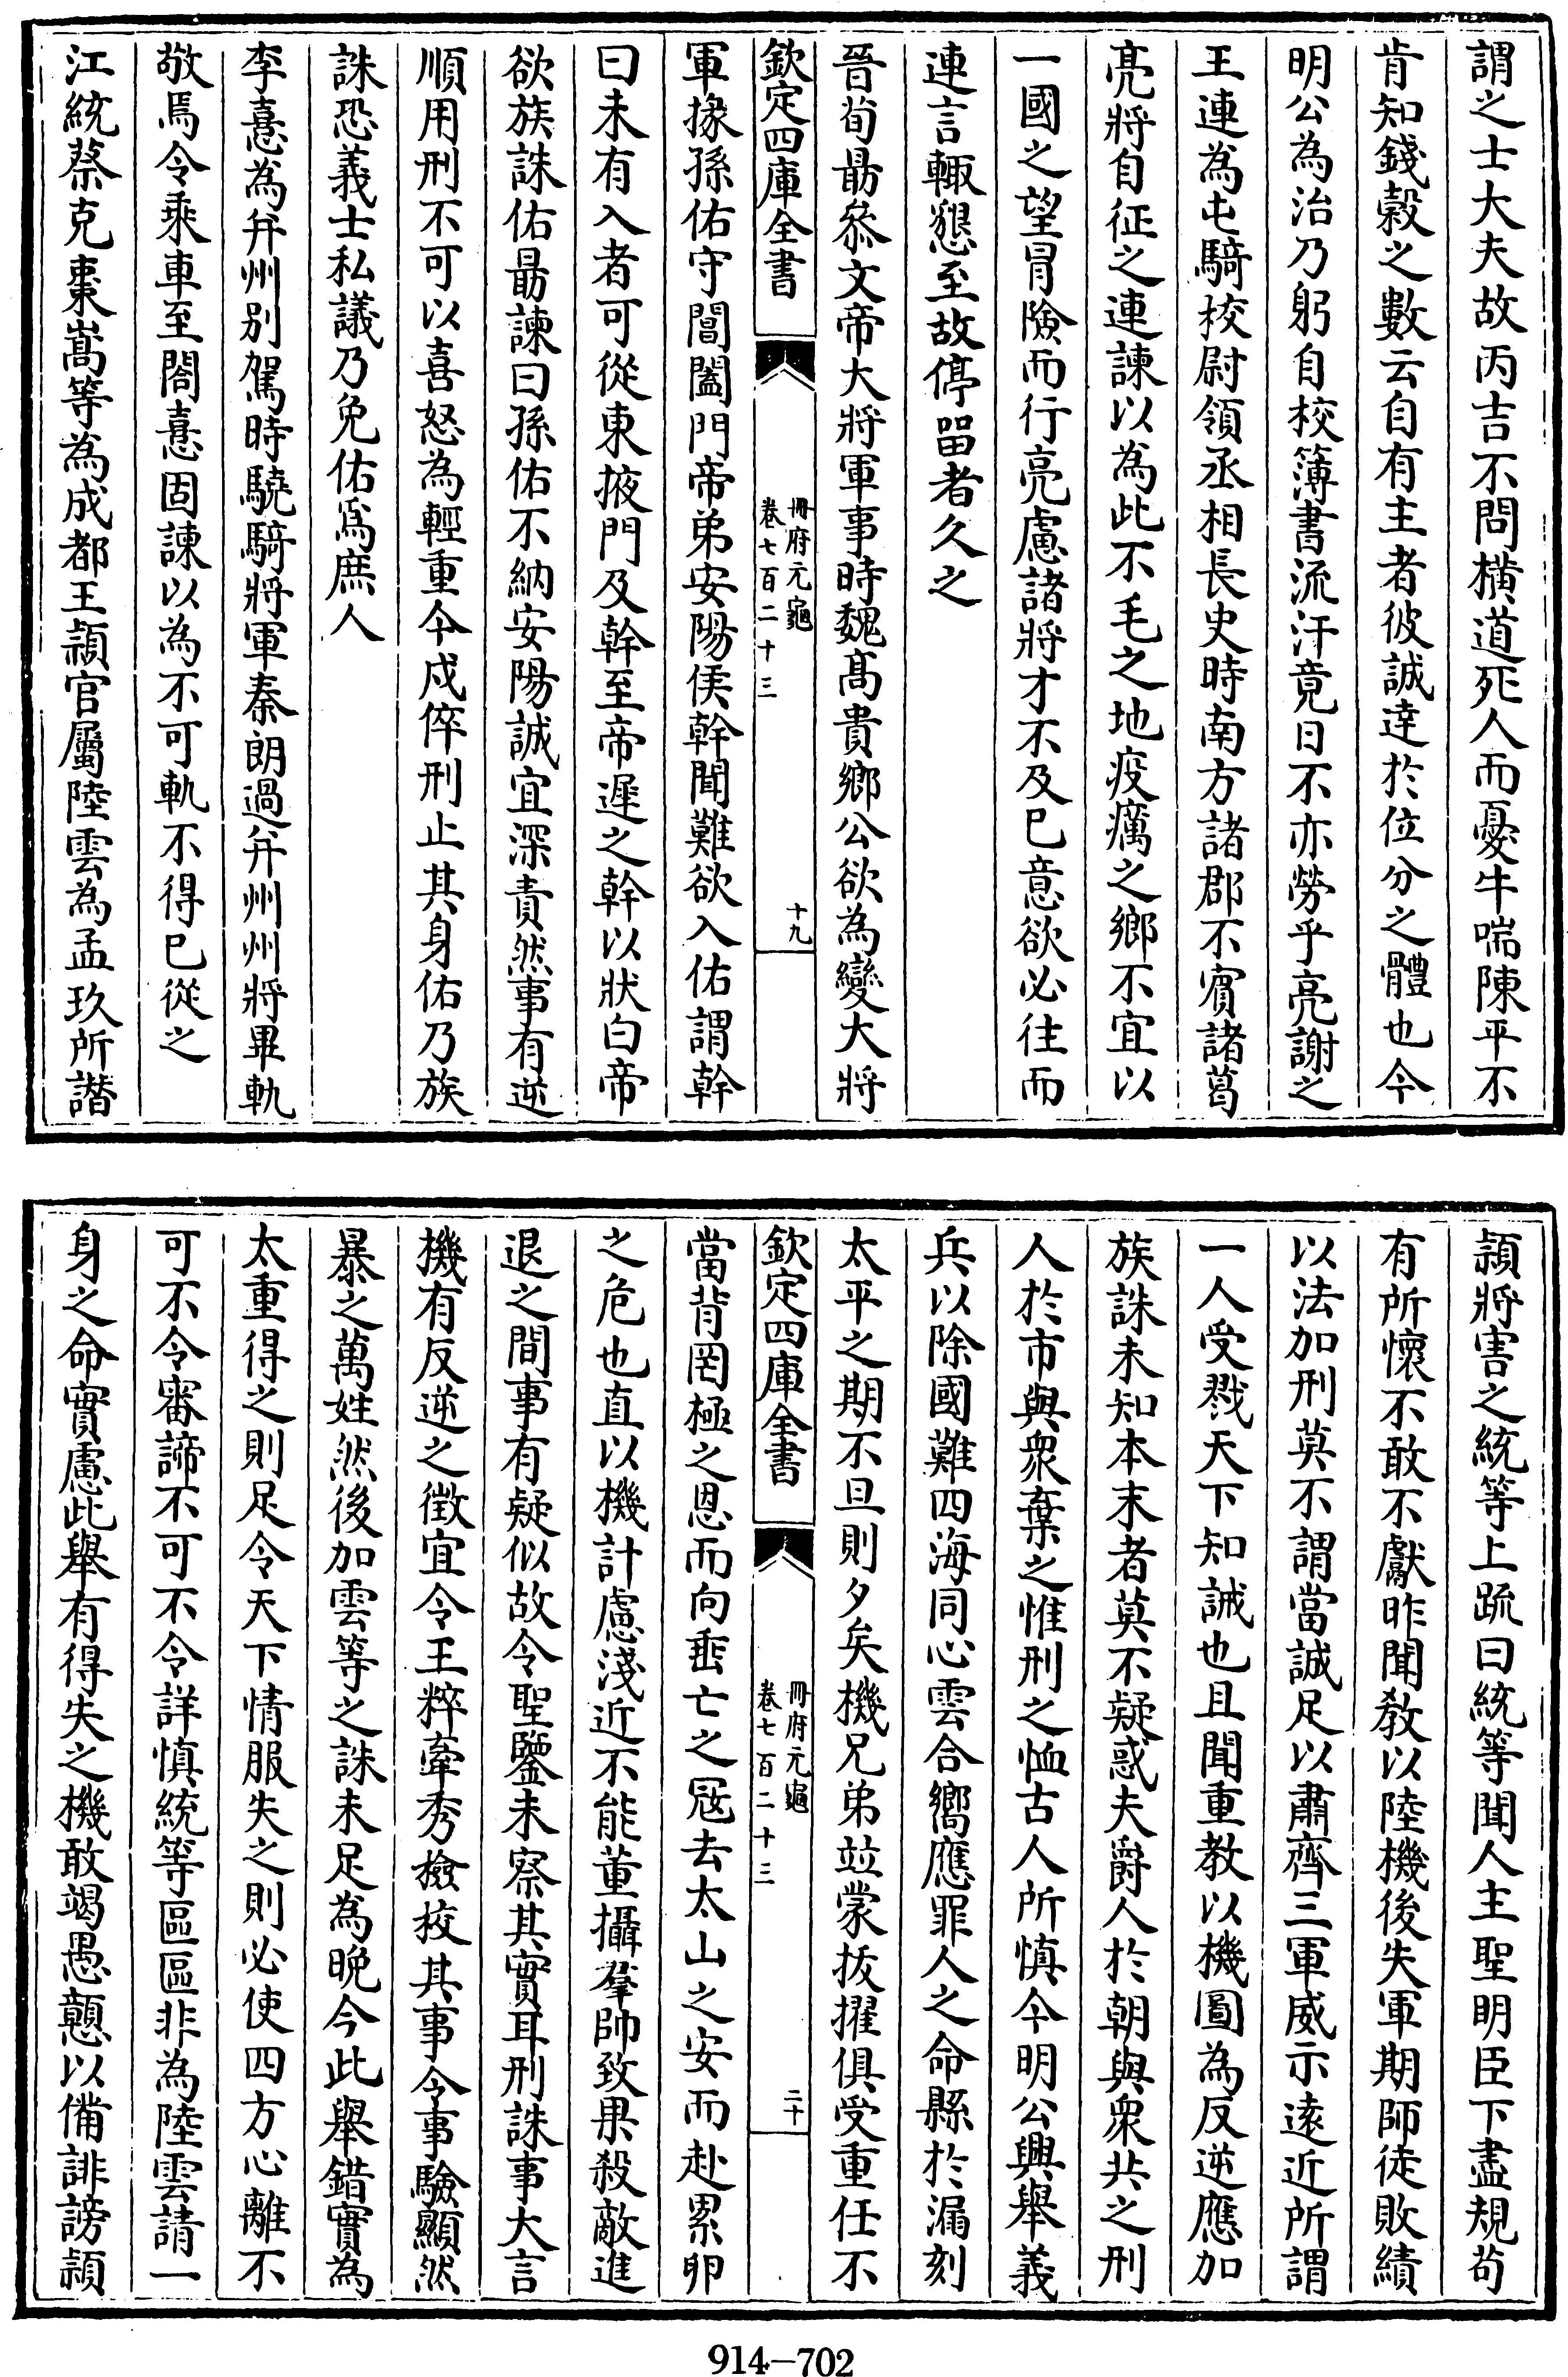 謂之士大夫故丙吉不問橫道死人而憂牛喘陳平不
肯知錢穀之數云自有主者彼誠達於位分之體也今
明公為治乃躬自校簿書流汗竟日不亦勞乎亮謝之
王連為屯騎校尉領丞相長史時南方諸郡不賓諸葛
亮將自征之連諫以為此不毛之地疫癘之鄉不宜以
一國之望冒險而行亮慮諸將才不及已意欲必往而
連言輙懇至故停留者久之
晉荀勗叅文帝大將軍事時魏髙貴鄉公欲為變大將
欽定四庫全書
冊府元龜
卷七百二十三
十九
軍掾孫佑守閶闔門帝弟安陽侯幹聞難欲入佑謂幹
曰未有入者可從東掖門及幹至帝遲之幹以狀白帝
欲族誅佑勗諫曰孫佑不納安陽誠宜深責然事有逆
順用刑不可以喜怒為輕重今成倅刑止其身佑乃族
誅恐義士私議乃免佑為庶人
李憙為并州别駕時驍騎將軍秦朗過并州州將畢軌
敬焉令乘車至閤憙固諫以為不可軌不得已從之
江統蔡克棗嵩等為成都王頴官屬陸雲為孟玖所譖
頴將害之統等上疏曰統等聞人主聖明臣下盡規苟
有所懷不敢不獻昨聞教以陸機後失軍期師徒敗績
以法加刑莫不謂當誠足以肅齊三軍威示逺近所謂
一人受戮天下知誡也且聞重教以機圖為反逆應加
族誅未知本末者莫不疑惑夫爵人於朝與衆共之刑
人於市與衆棄之惟刑之恤古人所慎今明公興舉義
兵以除國難四海同心雲合嚮應罪人之命縣於漏刻
太平之期不旦則夕矣機兄弟竝蒙拔擢俱受重任不
欽定四庫全書
冊府元龜
卷七百二十三
二十
當背罔極之恩而向垂亡之冦去太山之安而赴累卵
之危也直以機計慮淺近不能董攝羣帥致果殺敵進
退之間事有疑似故令聖鑒未察其實耳刑誅事大言
機有反逆之徴宜令王粹牽秀檢校其事令事驗顯然
暴之萬姓然後加雲等之誅未足為晚今此舉錯實為
太重得之則足令天下情服失之則必使四方心離不
可不令審諦不可不令詳慎統等區區非為陸雲請一
身之命實慮此舉有得失之機敢竭愚戇以備誹謗頴
914—702